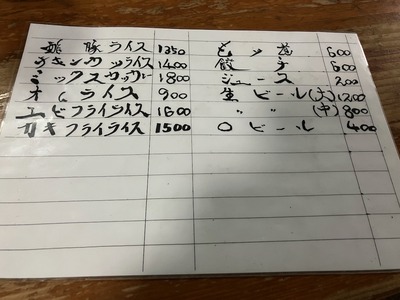 酢豚ライス 1350
チキンカツライス 1400
ミックスサンダー 1800
オムライス 900
エビフライライス 1600
カキフライライス 1500
600
餃子 600
ジュース 200
生ビール(大) 1200
〃 〃 (中) 800
〇ビール 400